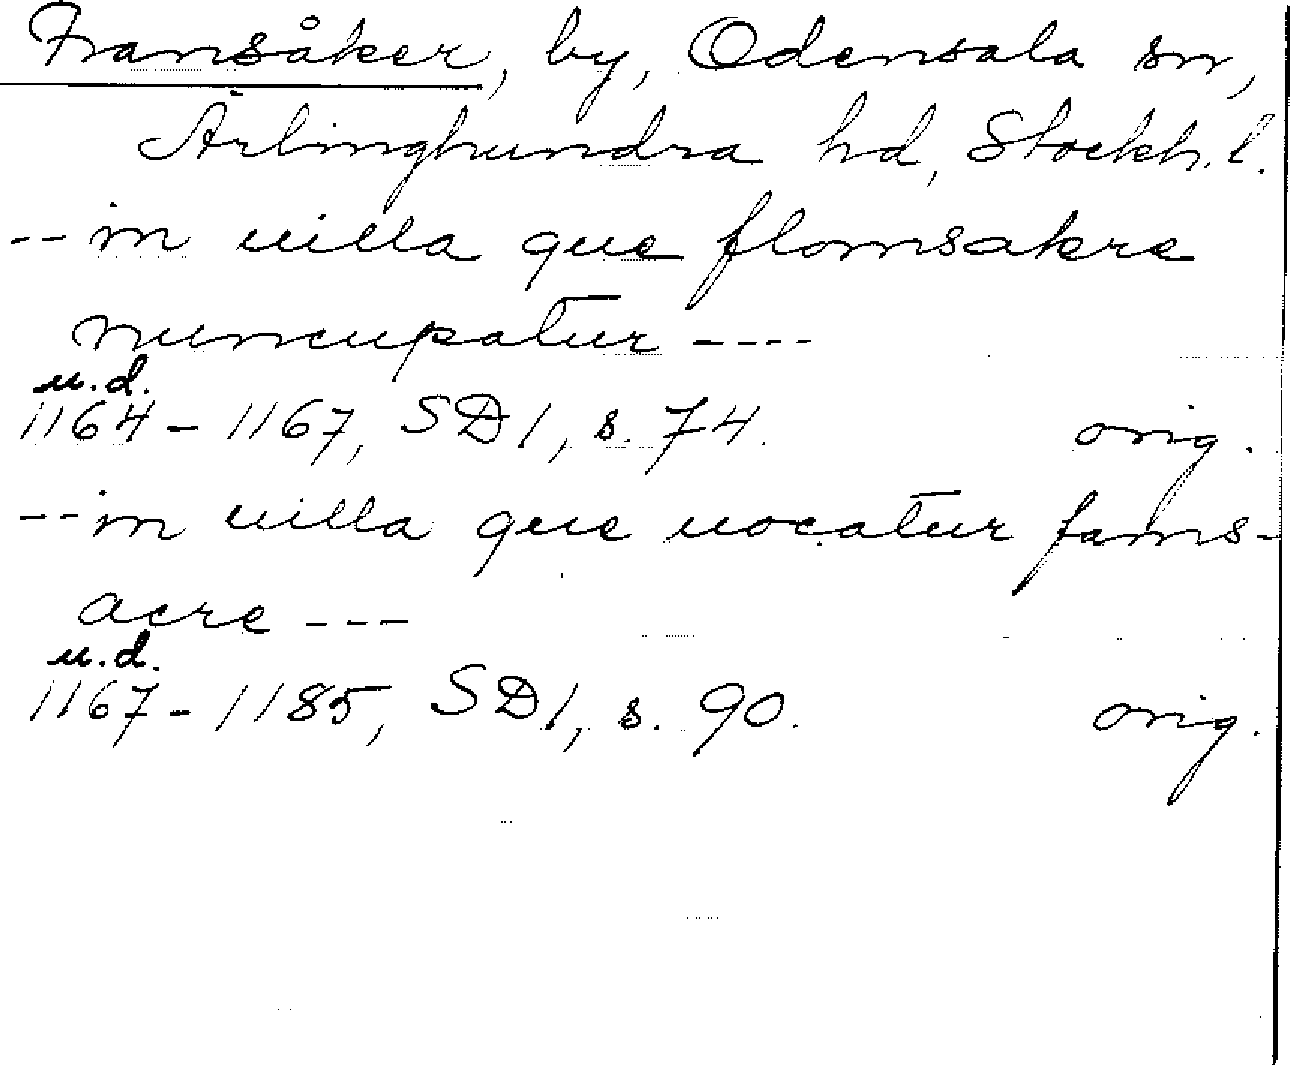 Fransåker, by, Odensala sn,
Ärlinghundra hd, Stockh. l.
-- in uilla que flomsakre
nuncupatur ----
u.d.
1164 - 1167, SD 1, s. 74. orig.
-- in uilla que uocatur fams-
acre ---
u.d.
1167 - 1185, SD 1, s. 90. orig.